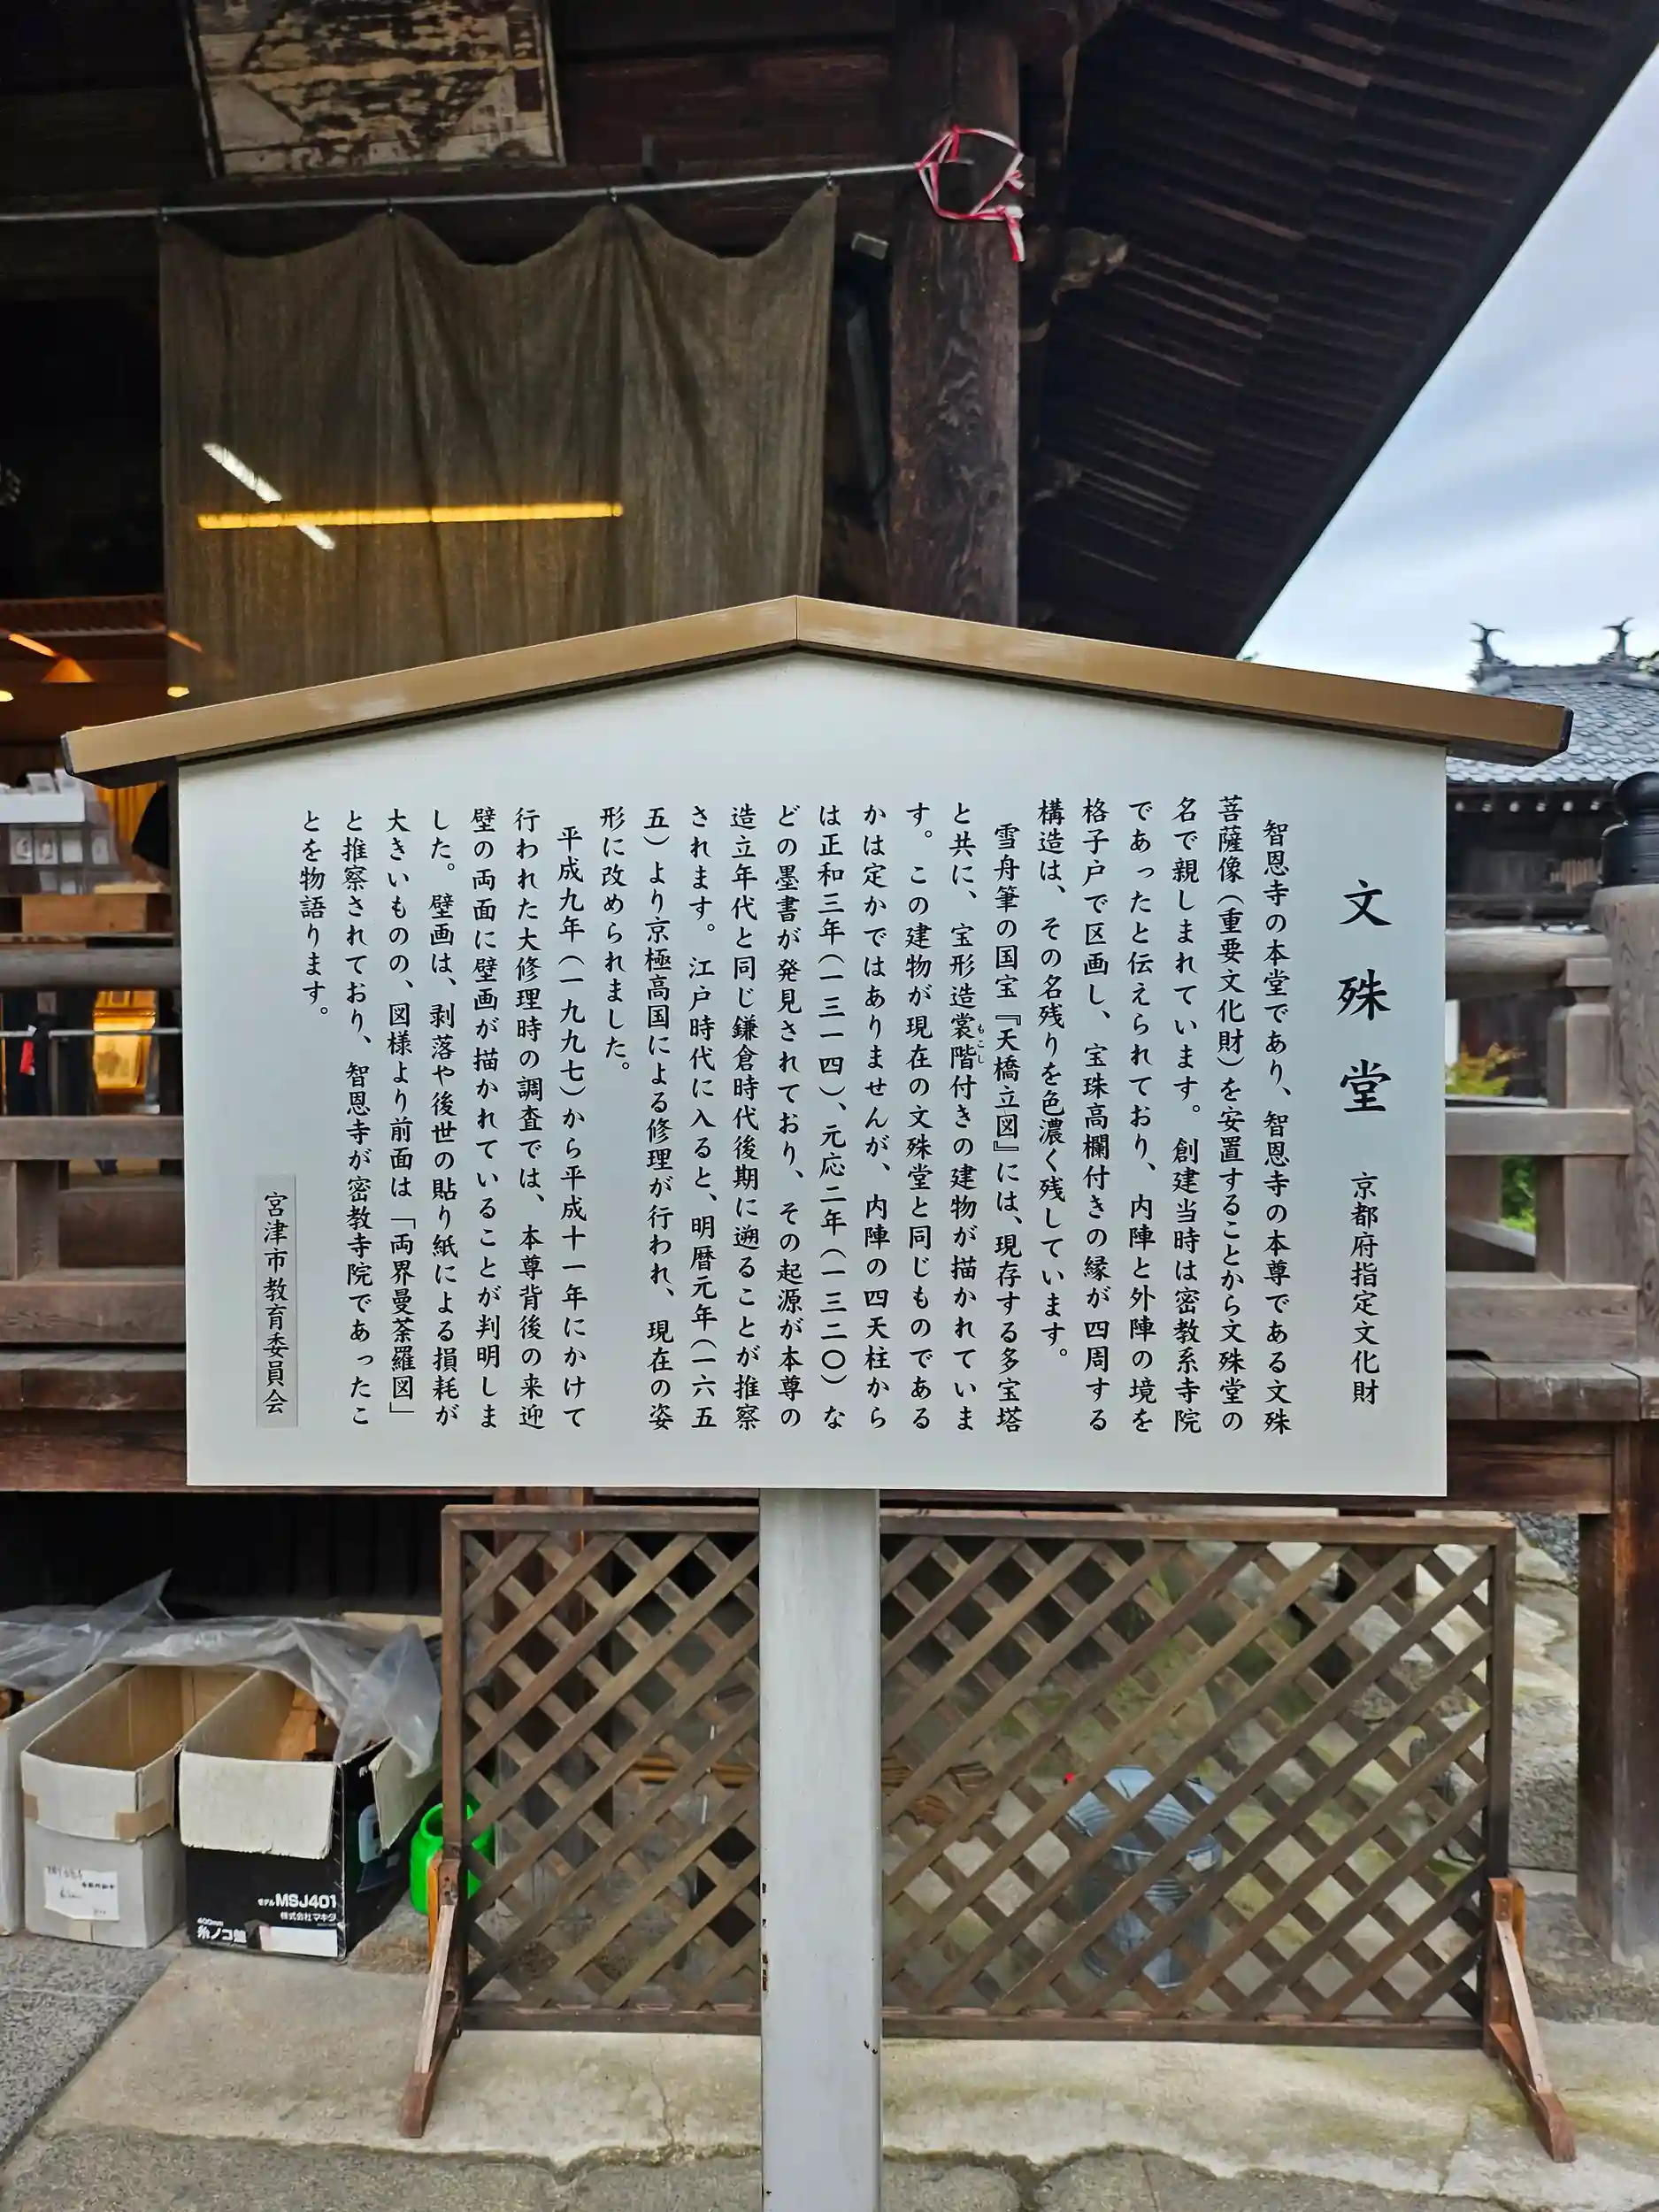 文殊堂 京都府指定文化財
智恩寺の本堂であり、智恩寺の本尊である文殊
菩薩像(重要文化財)を安置することから文殊堂の
名で親しまれています。創建当時は密教系寺院
であったと伝えられており、内陣と外陣の境を
格子戸で区画し、宝珠高欄付きの縁が四周する
構造は、その名残りを色濃く残しています。
雪舟筆の国宝『天橋立図』には、現存する多宝塔
と共に、宝形造裳階付きの建物が描かれていま
もこし
す。この建物が現在の文殊堂と同じものである
かは定かではありませんが、内陣の四天柱から
は正和三年(一三一四)、元応二年(一三二〇)な
どの墨書が発見されており、その起源が本尊の
造立年代と同じ鎌倉時代後期に遡ることが推察
されます。江戸時代に入ると、明暦元年(一六五
五)より京極高国による修理が行われ、現在の姿
形に改められました。
平成九年(一九九七)から平成十一年にかけて
行われた大修理時の調査では、本尊背後の来迎
壁の両面に壁画が描かれていることが判明しま
した。壁画は、剥落や後世の貼り紙による損耗が
大きいものの、図様より前面は「両界曼荼羅図」
と推察されており、智恩寺が密教寺院であったこ
とを物語ります。
宮津市教育委員会
モデル MSJ401
株式会社マキタ
400mm
糸ノコ盤